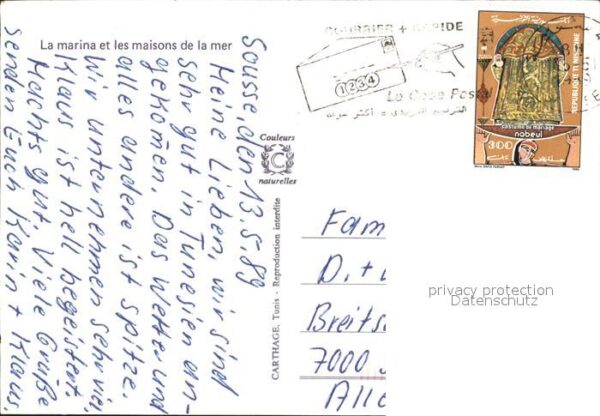 La marina et les maisons de la mer
Sousse, den 13.5.89
Meine Lieben, wir sind
sehr gut in Tunesien an-
gekommen. Das Wetter und
alles andere ist spitze.
Wir unternehmen sehr viel,
Klaus ist hell begeistert.
Machts gut. Viele Grüße
senden Euch Karin + Klaus.
Couleurs
C
naturelles
CARTHAGE, Tunis - Reproduction interdite
COURRIER + RAPIDE
1234
Le Code Postal
الترقيم البريدي = أكثر سرعة
REPUBLIQUE TUNISIENNE
costume de mariage
nabeul
300
Fam
D. + U
Breits
7000
Alle
privacy protection
Datenschutz